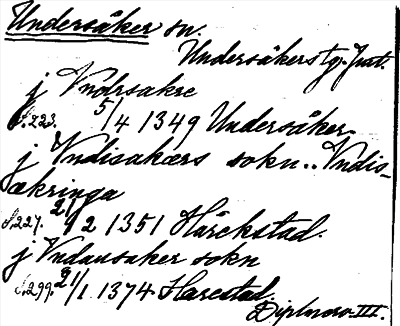 Undersåker sn.
Undersåkers tg. Jmt.
j Vndrsakre
S.223. 5/4 1349 Undersåker
j Vndisakærs sokn.. Vndis-
ækringa
S.227. 2/2 1351 Hårekstad.
j Vndausaker sokn
S.299. 21/1 1374 Harestad.
Diplnorv III.